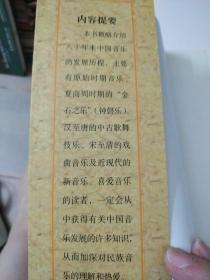 内容提要
本书概略介绍
八千年来中国音乐
的发展历程，主要
有原始时期音乐、
夏商周时期的“金
石之乐”（钟磬乐）、
汉至唐的中古歌舞
伎乐、宋至清的戏
曲音乐及近现代的
新音乐。喜爱音乐
的读者，一定会从
中获得有关中国音
乐发展的许多知识，
从而加深对民族音
乐的理解和热爱。